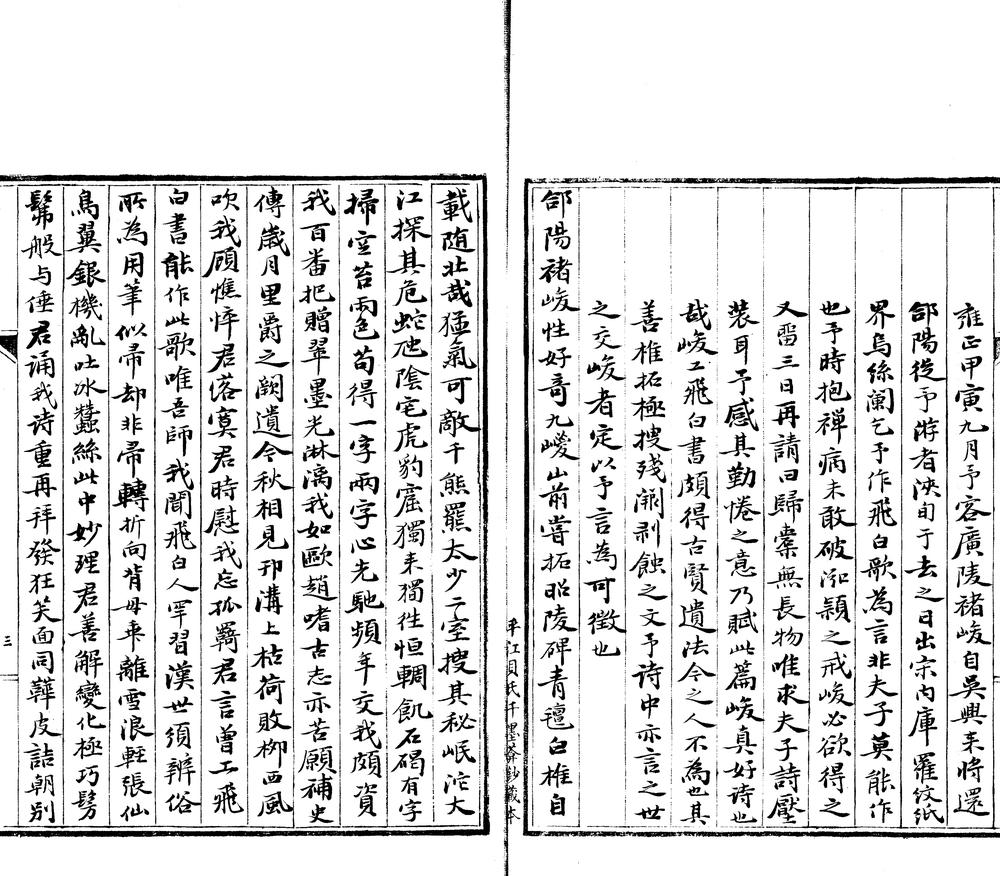 雍正甲寅九月予客廣陵褚峻自吳興来將還
郃陽從予游者浹旬于去之日出宋内庫羅紋紙
界烏絲闌乞予作飛白歌為言非夫子莫能作
也予時抱禪病未敢破泓穎之戒峻必欲得之
又畱三日再請曰歸橐無長物唯求夫子詩壓
装耳予感其勤惓之意乃賦此篇峻真好诗也
㢤峻工飛白書頗得古賢遺法今之人不為也其
善椎拓極搜殘澌剥蝕之文予诗中亦言之世
之交峻者定以予言為可徵也
郃陽褚峻性好竒九嵕山前嘗拓昭陵碑青氊白椎自
平江貝氏千墨莽鈔藏本
載随壮哉猛氣可敵千熊羆太少二室搜其秘岷沱大
江探其危蛇虺陰宅虎豹窟獨来獨徃恒輖飢石碣有字
掃空苔雨色苟得一字兩字心先馳頻年交我頗資
我百番把贈翠墨光淋漓我如歐趙嗜古志亦苦願補史
傳歲月里爵之闕遺今秋相見邗溝上枯荷敗栁西風
吹我顔憔悴君落寞君時慰我忘孤羇君言曾工飛
白書能作此歌唯吾師我聞飛白人罕習漢世須辨俗
所為用筆似帚却非帚轉折向背毋乖離雪浪輕張仙
鳥翼銀機亂吐冰蠶絲此中妙理君善解變化極巧髣
髴般与倕君诵我诗重再拜發狂笑面同韡皮詰朝别
三